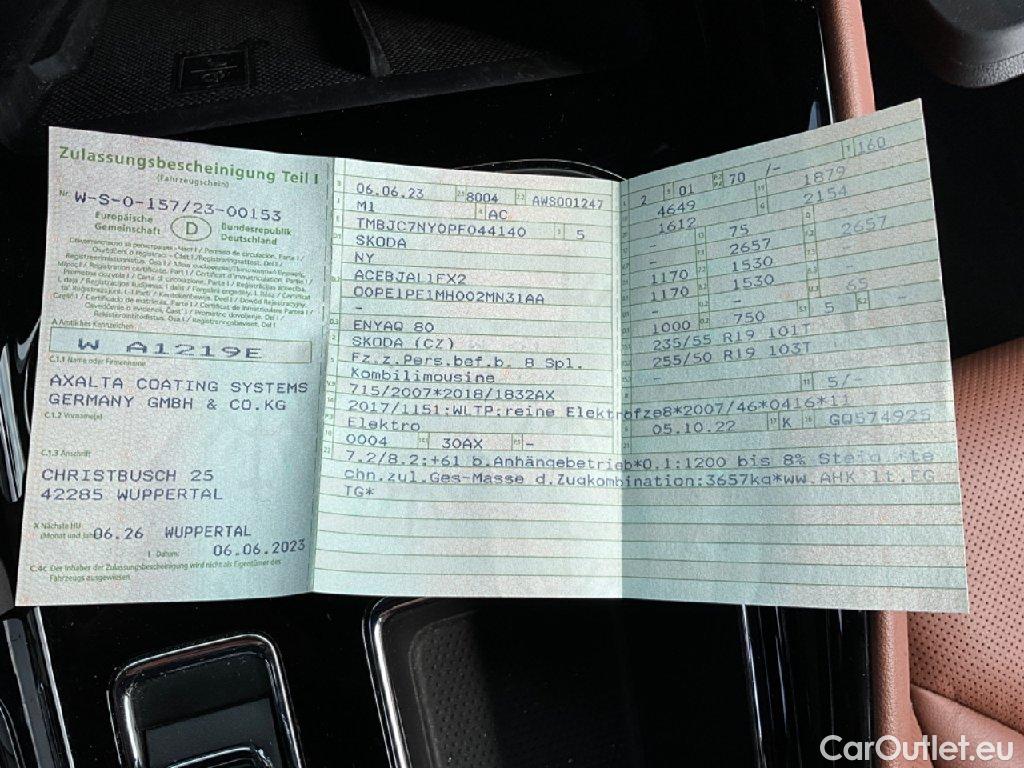 Zulassungsbescheinigung Teil I
(Fahrzeugschein)
Nr. W-S-0-157/23-00153
Europäische Gemeinschaft
D
Bundesrepublik Deutschland
A Amtliches Kennzeichen
W A1219E
C.1.1 Name oder Firmenname
AXALTA COATING SYSTEMS
GERMANY GMBH & CO.KG
C.1.2 Vorname(n)
C.1.3 Anschrift
CHRISTBUSCH 25
42285 WUPPERTAL
X Nächste HU
(Monat und Jahr) 06.26 WUPPERTAL
I Datum: 06.06.2023
C.4c Der Inhaber der Zulassungsbescheinigung wird nicht als Eigentümer des
Fahrzeugs ausgewiesen.
06.06.23 8004 AWS001247
M1 AC
TMBJC7NY0PF044140 5
SKODA
NY
ACEBJAL1FX2
00PE1PE1MH002MN31AA
-
ENYAQ 80
SKODA (CZ)
Fz.z.Pers.bef.b. 8 Spl.
Kombilimousine
715/2007*2018/1832AX
2017/1151;WLTP;reine Elektrofz
Elektro
0004 30AX -
7.2/8.2:+61 b.Anhängebetrieb*0.1:1200 bis 8%
chn.zul.Ges-Masse d.Zugkombination:3657kg*ww.AHK lt.EG
TG*
2 01 70 /- 160
4649 1879
1612 2154
- 75 -
- 2657 2657
1170 1530
1170 1530 -
- - 65
1000 750 5 -
235/55 R19 101T
255/50 R19 103T
-
- 5/-
e8*2007/46*0416*11
05.10.22 K GQ574925
CarOutlet.eu